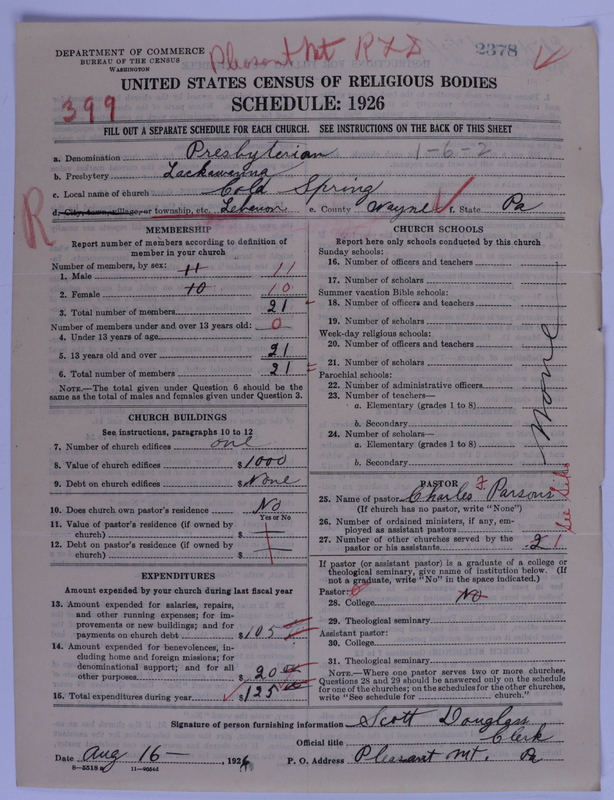 DEPARTMENT OF COMMERCE
BUREAU OF THE CENSUS
WASHINGTON
Pleasant Mt R&D
2378
UNITED STATES CENSUS OF RELIGIOUS BODIES
399
SCHEDULE: 1926
FILL OUT A SEPARATE SCHEDULE FOR EACH CHURCH. SEE INSTRUCTIONS ON THE BACK OF THIS SHEET
a. Denomination Presbyterian 1-6-2
b. Presbytery Lackawanna
c. Local name of church Cold Spring
R d. City, town, village, or township, etc. Lebanon e. County Wayne f. State Pa
MEMBERSHIP
Report number of members according to definition of member in your church
Number of members, by sex:
1. Male 11 11
2. Female 10 10
3. Total number of members 21
Number of members under and over 13 years old: 0
4. Under 13 years of age
5. 13 years old and over 21
6. Total number of members 21
NOTE.—The total given under Question 6 should be the same as the total of males and females given under Question 3.
CHURCH BUILDINGS
See instructions, paragraphs 10 to 12
7. Number of church edifices one
8. Value of church edifices $1000
9. Debt on church edifices $None
10. Does church own pastor's residence No
Yes or No
11. Value of pastor's residence (if owned by church) $
12. Debt on pastor's residence (if owned by church) $
EXPENDITURES
Amount expended by your church during last fiscal year
13. Amount expended for salaries, repairs, and other running expenses; for improvements or new buildings; and for payments on church debt $105
14. Amount expended for benevolences, including home and foreign missions; for denominational support; and for all other purposes $20 00
15. Total expenditures during year $125 00
CHURCH SCHOOLS
Report here only schools conducted by this church
Sunday schools:
16. Number of officers and teachers
17. Number of scholars
Summer vacation Bible schools:
18. Number of officers and teachers
19. Number of scholars
Week-day religious schools:
20. Number of officers and teachers
21. Number of scholars
Parochial schools:
22. Number of administrative officers
23. Number of teachers—
a. Elementary (grades 1 to 8)
b. Secondary
24. Number of scholars—
a. Elementary (grades 1 to 8)
b. Secondary
None
PASTOR
25. Name of pastor Charles F Parsons
(If church has no pastor, write "None")
26. Number of ordained ministers, if any, employed as assistant pastors
27. Number of other churches served by the pastor or his assistants 2 1
If pastor (or assistant pastor) is a graduate of a college or theological seminary, give name of institution below. (If not a graduate, write "No" in the space indicated.)
Pastor:
28. College No
29. Theological seminary
Assistant pastor:
30. College
31. Theological seminary
NOTE.—Where one pastor serves two or more churches, Questions 28 and 29 should be answered only on the schedule for one of the churches; on the schedules for the other churches, write "See schedule for church."
Signature of person furnishing information Scott Douglass
Official title Clerk
Date Aug 16—, 1926 P. O. Address Pleasant Mt. Pa
8—5518a 11—9054d